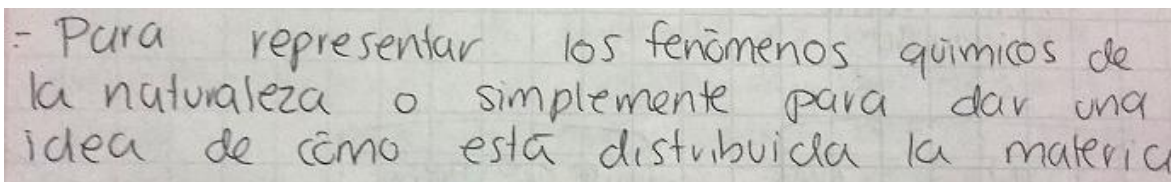 - Para representar los fenómenos químicos de
la naturaleza o simplemente para dar una
idea de cómo está distribuida la materia